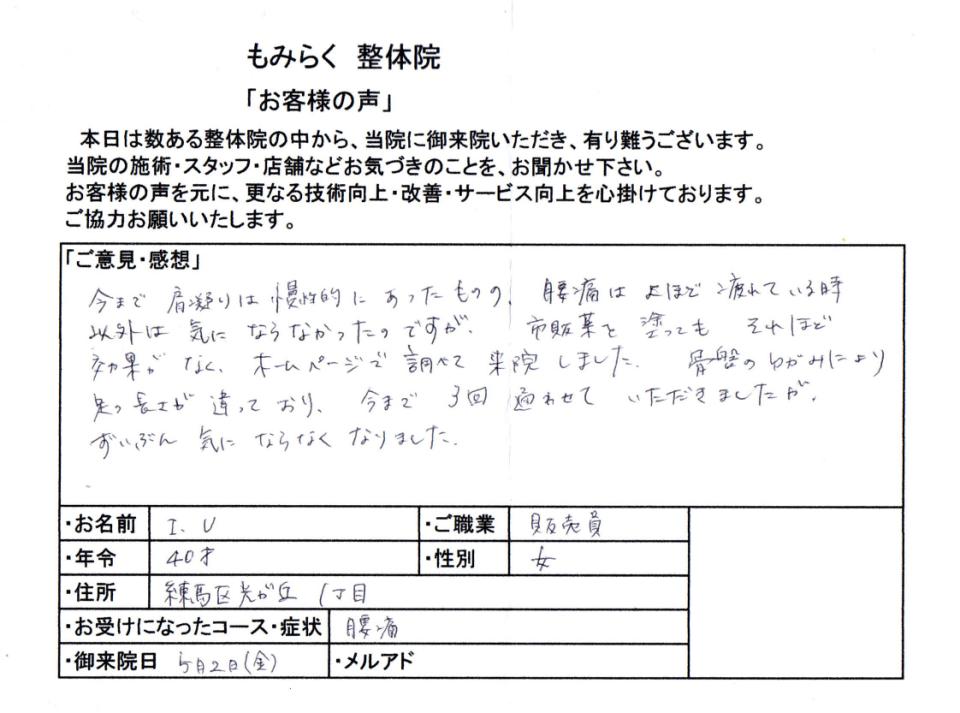 もみらく 整体院
「お客様の声」
本日は数ある整体院の中から、当院に御来院いただき、有り難うございます。
当院の施術・スタッフ・店舗などお気づきのことを、お聞かせ下さい。
お客様の声を元に、更なる技術向上・改善・サービス向上を心掛けております。
ご協力お願いいたします。
「ご意見・感想」
今まで 肩凝りは 慢性的に あったものの、 腰痛は よほど 疲れている時
以外は 気に ならなかったのですが、 市販薬を 塗っても それほど
効果がなく、ホームページで 調べて 来院 しました。 骨盤の ゆがみにより
足の長さが 違っており、 今まで 3回 通わせて いただきましたが、
ずいぶん 気に ならなく なりました。
・お名前 I. U ・ご職業 販売員
・年令 40才 ・性別 女
・住所 練馬区光が丘 1丁目
・お受けになったコース・症状 腰痛
・御来院日 5月2日(金) ・メルアド